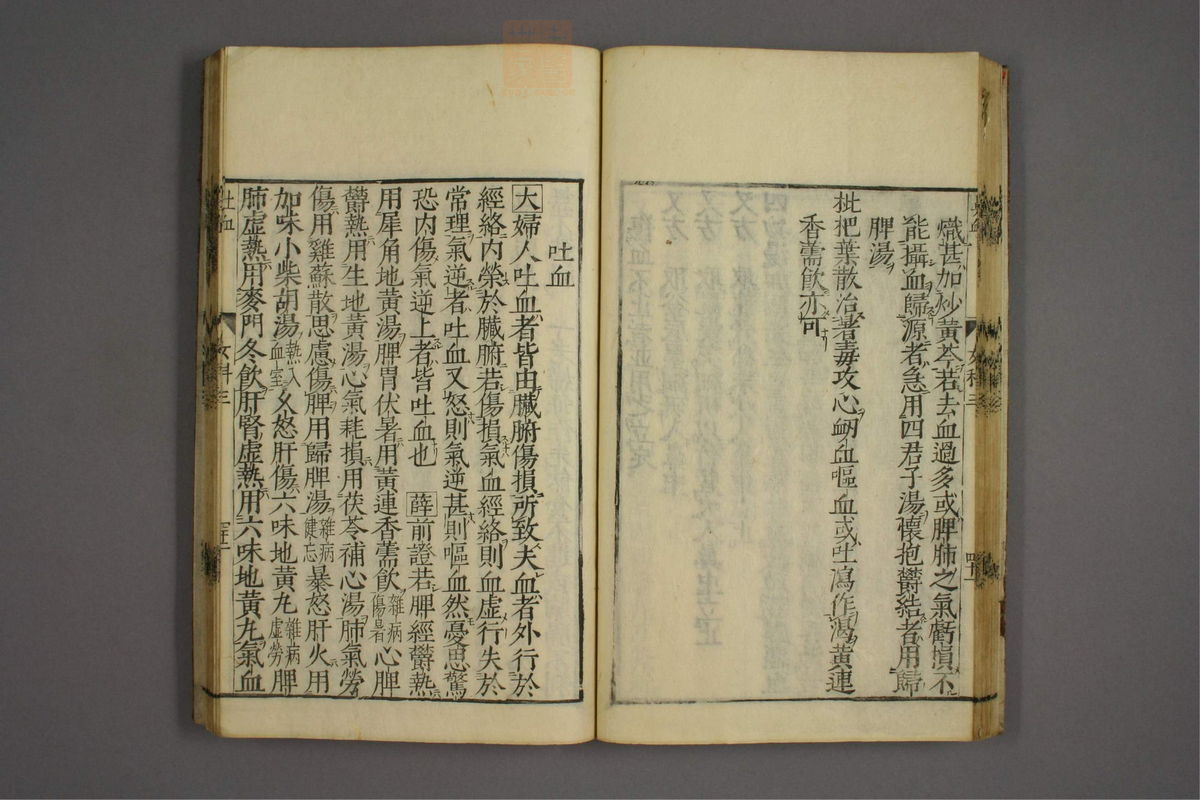 熾甚加炒黄芩若去血過多或脾肺之氣虧損不
能攝血歸源者急用四君子湯懷抱欝結者用歸
脾湯
枇把葉散治暑毒攻心衂血嘔血或吐瀉作渴黄連
香薷飲亦可
吐血
大婦人吐血者皆由臟腑傷損所致夫血者外行於
經絡内榮於臟腑若傷損氣血經絡則血虚行失於
常理氣逆者吐血又怒則氣逆甚則嘔血然憂思驚
恐内傷氣逆上者皆吐血也 薛前證若脾經欝熱
用犀角地黄湯脾胃伏暑用黄連香薷飲雜病傷暑心脾
欝熱用生地黄湯心氣耗損用茯苓補心湯肺氣勞
傷用雞蘇散思慮傷脾用歸脾湯雜病健忘暴怒肝火用
加味小柴胡湯熱入血室久怒肝傷六味地黄丸雜病虚勞脾
肺虚熱用麥門冬飲肝腎虚熱用六味地黄丸氣血
吐血
女科三